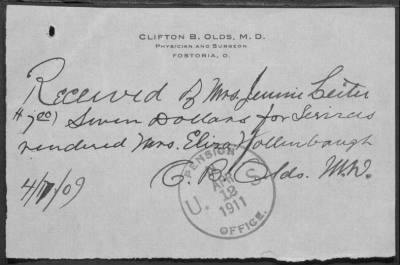 CLIFTON B. OLDS, M. D.
PHYSICIAN AND SURGEON
FOSTORIA, O.
Received of Mrs. Jennie Leiter
#7.00) Seven Dollars for Services
rendered Mrs. Eliza Hollenbaugh
C. B. Olds. M.D.
4/ /09
U. S. PENSION OFFICE.
APR
12
1911